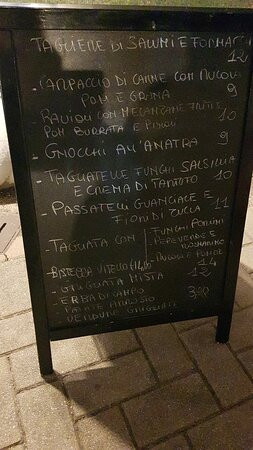 TAGLIERE DI SALUMI E FORMAGGI
12
- CARPACCIO DI CARNE CON RUCOLA
POM. E GRANA 9
- RAVIOLI CON MELANZANE FRITTE
POM BURRATA E PINOLI 10
- GNOCCHI ALL'ANATRA 9
- TAGLIATELLE FUNGHI SALSICCIA
E CREMA DI TARTUFO 10
- PASSATELLI GUANCIALE E
FIORI DI ZUCCA 11
- TAGLIATA CON FUNGHI PORCINI
PEPE VERDE E
ROSMARINO
RUCOLA E
14
- BISTECCA VITELLO
- GRIGLIATA MISTA 12
- ERBA DI CAMPO 3,00
PATATE ARROSTO
VERDURE GRIGLIATE